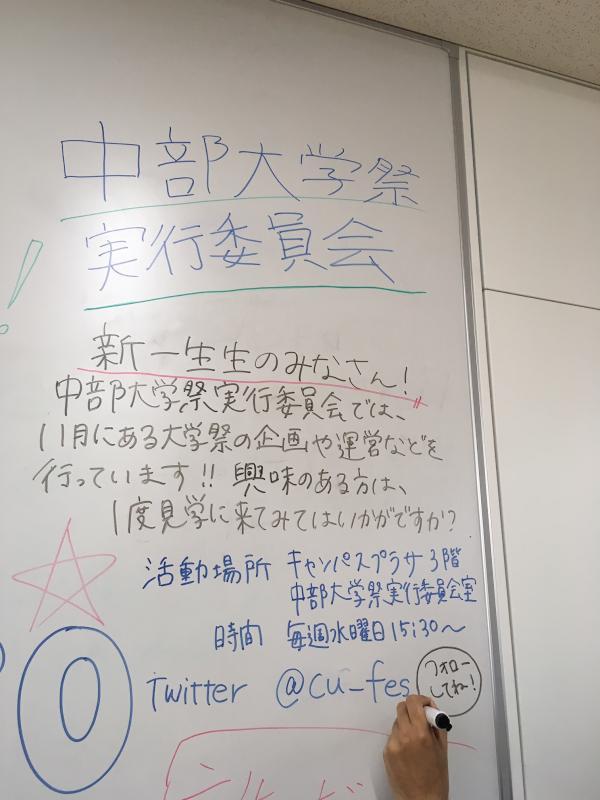 中部大学祭
実行委員会
!
新一生生のみなさん!
中部大学祭実行委員会では、
11月にある大学祭の企画や運営などを
行っています!! 興味のある方は、
1度見学に来てみてはいかがですか?
活動場所 キャンパスプラザ3階
中部大学祭実行委員会室
時間 毎週水曜日15:30〜
Twitter @cu_fes
フォロー
してね!
0